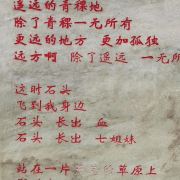 遥远的青稞地
除了青稞一无所有
更远的地方 更加孤独
远方啊 除了遥远 一无所
这时石头
飞到我身边
石头 长出 血
石头 长出 七姐妹
站在一片 的草原上